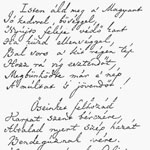 Isten áldd meg a Magyart
Jó kedvvel, bőséggel,
Nyújts feléje védő kart
Ha küzd ellenséggel,
Bal sors a kit régen tép
Hozz rá víg esztendőt,
Megbünhödte már e nép
A multat s jövendőt!
Őseinket felhozád
Kárpát szent bérczére,
Általad nyert szép hazát
Bendegúznak vére.